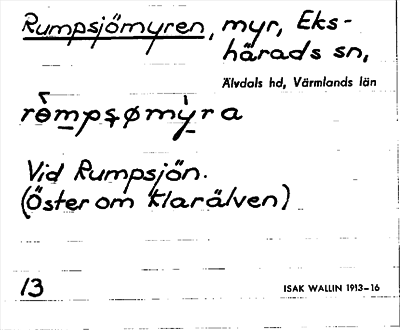 Rumpsjömyren, myr, Eks-
härads sn,
Älvdals hd, Värmlands län
rèmpşømỳra
Vid Rumpsjön.
(Öster om Klarälven)
13
ISAK WALLIN 1913–16